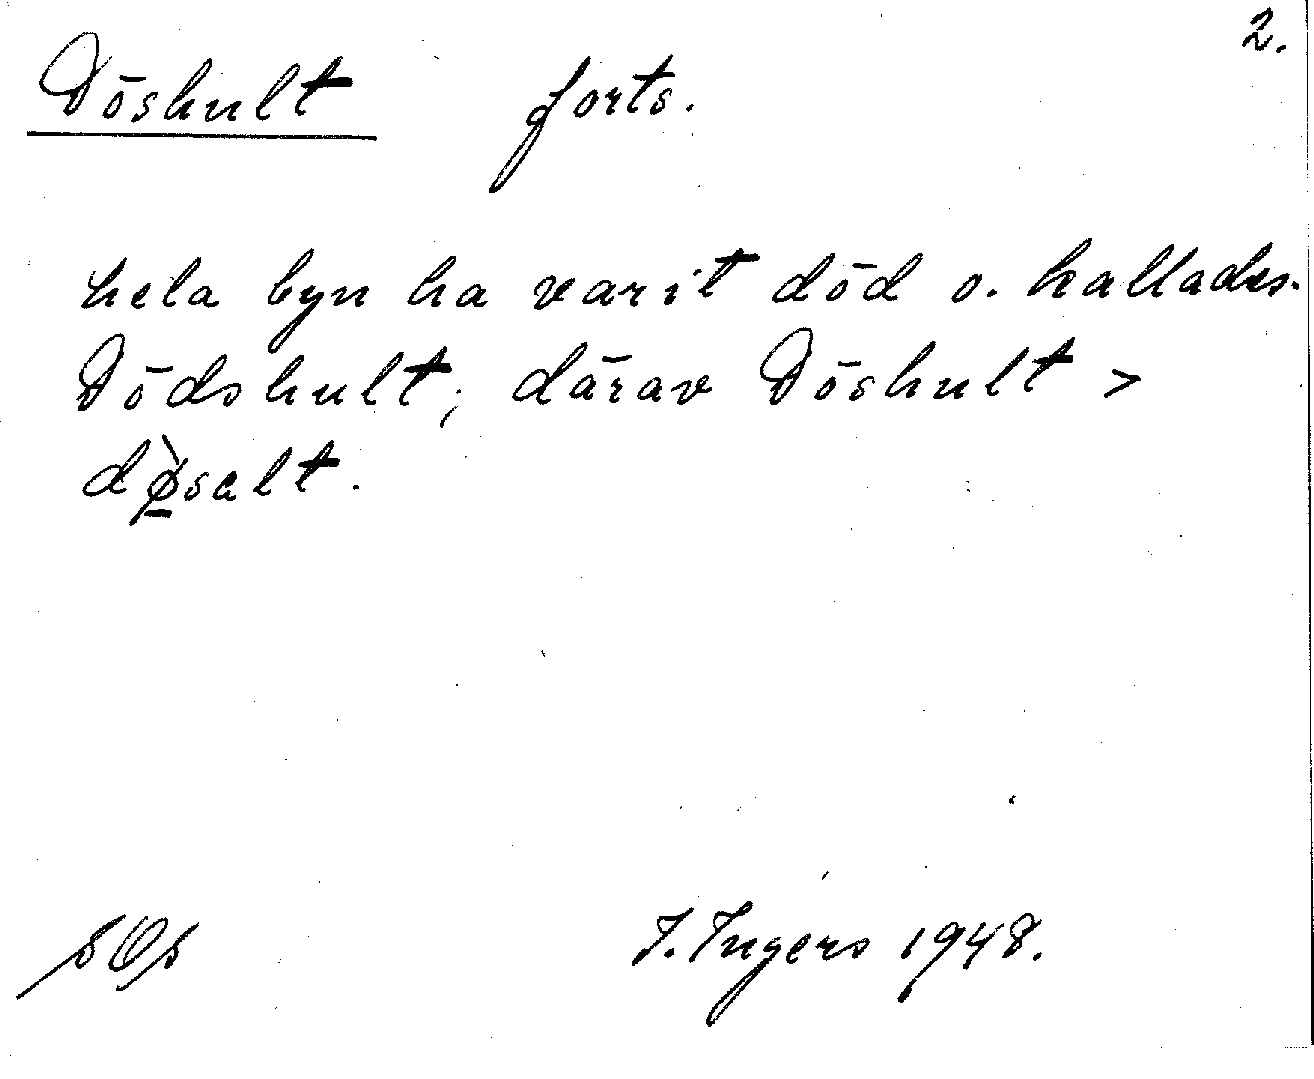 2.
Döshult forts.
hela byn ha varit död o. kallades.
Dödshult; därav Döshult >
dø̠̀salt.
I. Ingers 1948.